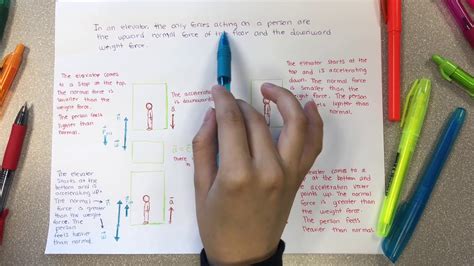 In an elevator, the only forces acting on a person are
the upward normal force of the floor and the downward
weight force.
The elevator comes
to a stop at the top.
The normal force is
smaller than the
weight force.
The person feels
lighter than normal.
The acceleration
is downward
The elevator starts at the
top and is accelerating
down. The normal force
is smaller than the
weight force. The person
feels lighter than
normal.
The elevator
starts at the
bottom and is
accelerating up.
The normal
force is greater
than the weight
force. The
person feels
heavier
than normal.
The elevator comes to a
at the bottom and
the acceleration
points up. The normal
force is greater than
the weight force.
The person feels
heavier than normal.